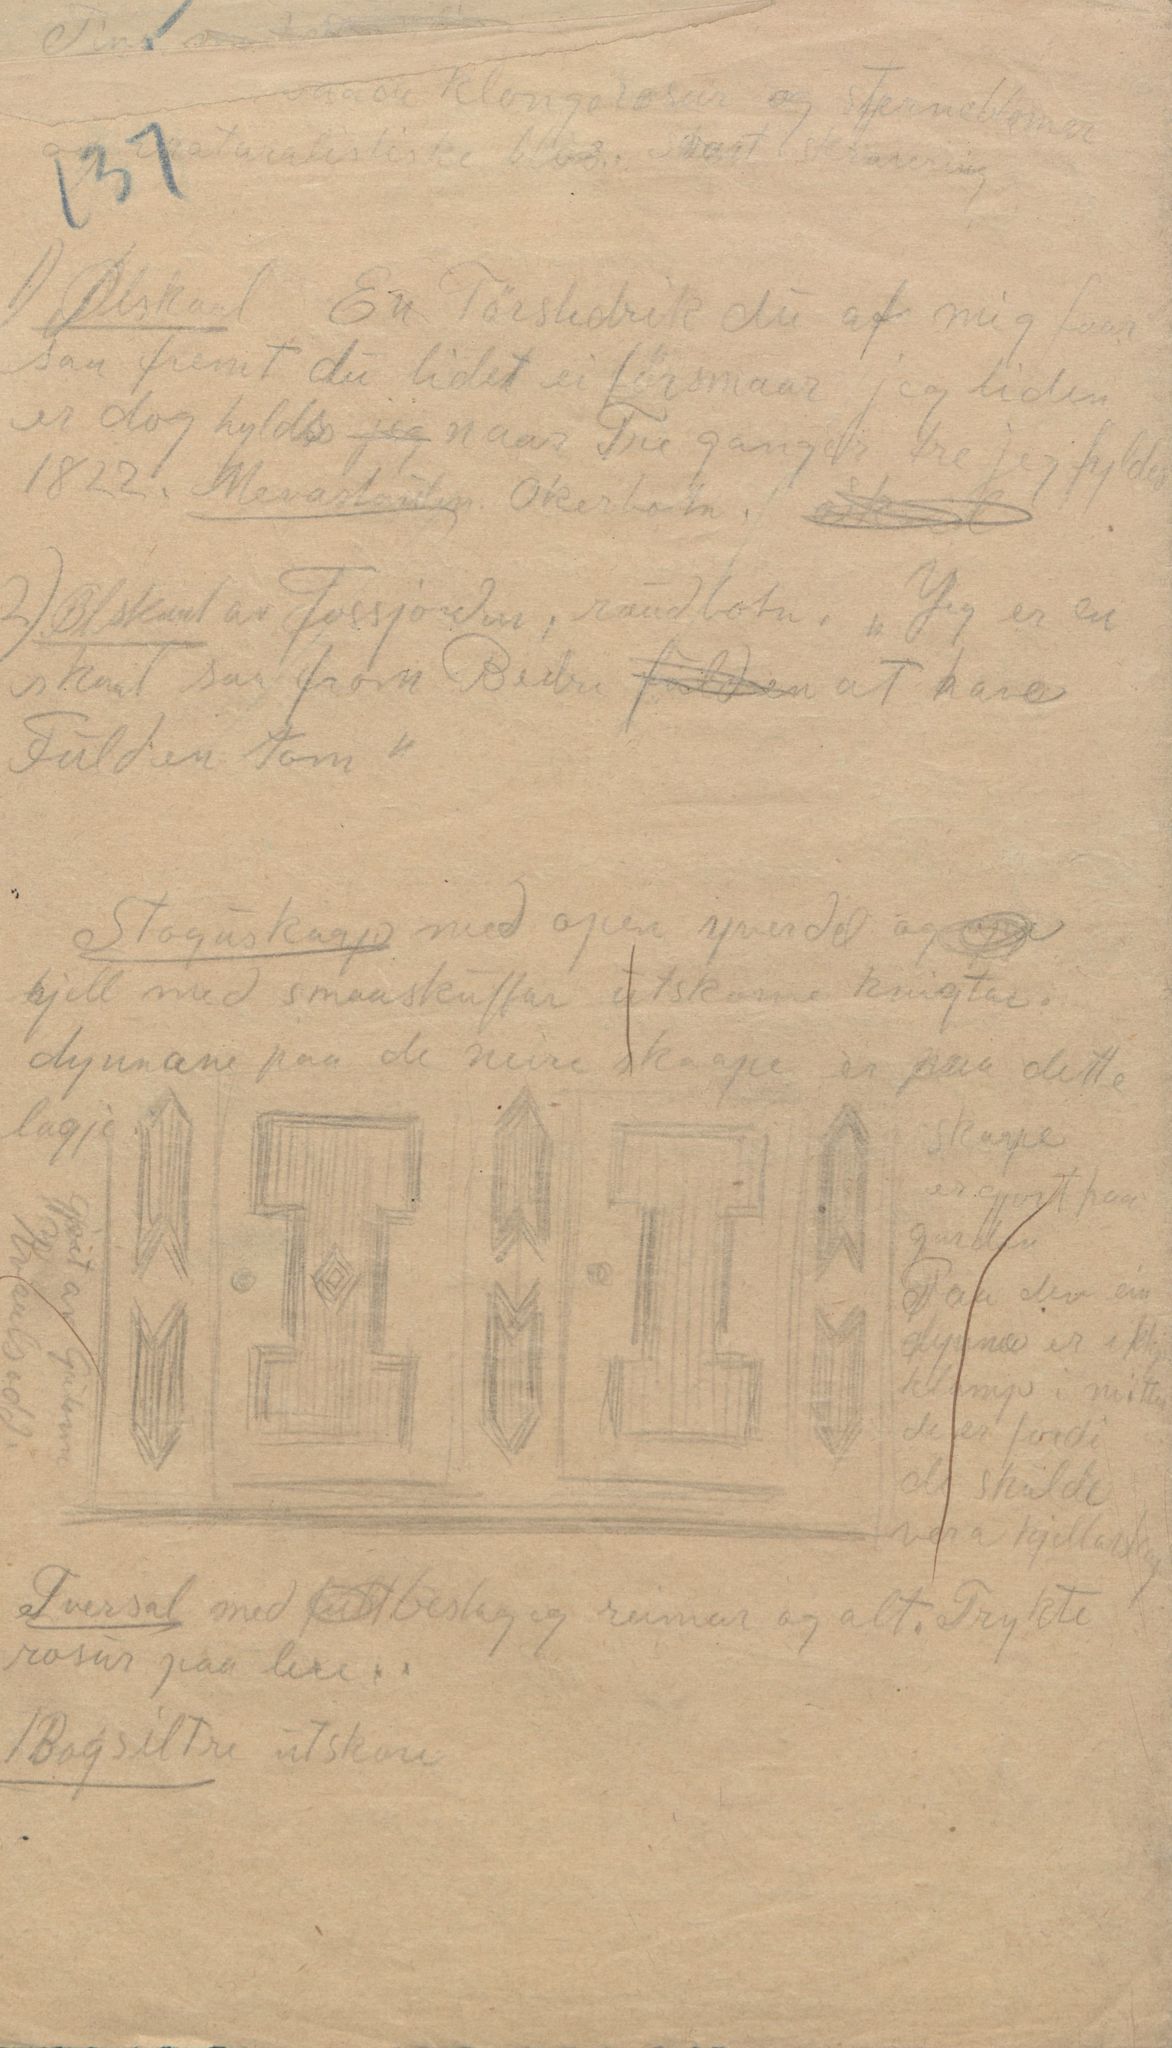 Tine
klongorosur og stjerneblomar
naturalistiske
137
1) Ølskaal En Törstedrik du af mig faar
saa fremt du lidet ei försmaar jeg liden
er dog hyldes jeg naar Tre ganger tre jeg fyldes
1822. Okerbotn.
2) Ølskaal av Fossjorden, raudbotn. „Jeg er en
skaal saa from Bedre fulden at have
Fulden tom"
Stoguskaap med open yverdel og
hjell med smaaskuffar utskorne knigtar.
dynnane paa de neire skaape er paa dette
lagje
skaape
er gjort paa
garden
Paa den ein
dynna er
klump i mitten
de er fordi
de skulde
vera kjellarskap
Gjort av
Tversal med beslag og reimar og alt. Trykte
rosur paa lere..
1 Bogsiltre utskore